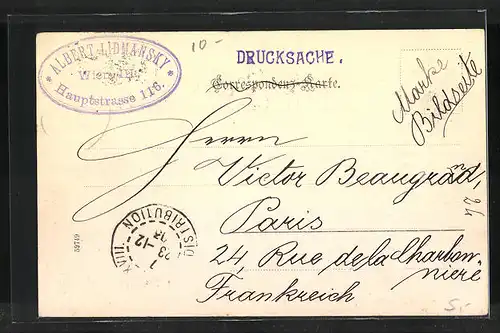 10-
DRUCKSACHE.
* ALBERT LIDMANSKY *
Wien, III.
Hauptstrasse 116.
Correspondenz-Karte.
Marke
Bildseite
Herrn
Victor Beaugrand,
Paris
24, Rue de la Charbon-
nière
Frankreich
DISTRIBUTION
7
23-12
XVIII
59709
42
5,-